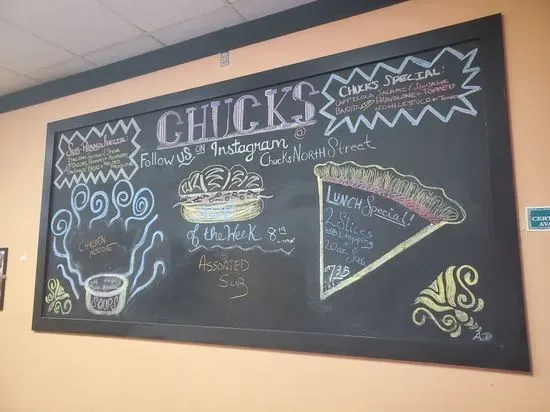 CHUCKS
Follow us on Instagram
@
Chucks North Street
CHUCK'S SPECIAL:
CAPPICOLA SALAMI & SAUSAGE
BAKED PROVOLONE & TOPPED
WITH LETTUCE &
SUB-
SPECIAL
CHICKEN
NOODLE
SOUPS
of the Week 8in
+TAX
ASSORTED
SUB
LUNCH Special!
2 Slices
w/ topping
+
20oz Soda
$7.35
CERT
AVA